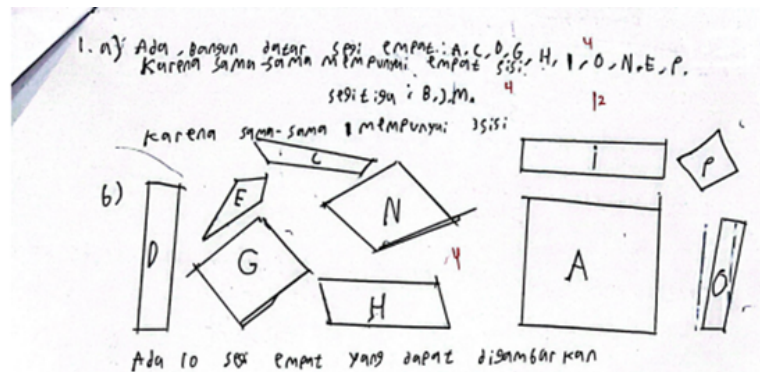 1. a) Ada, Bangun datar segi empat : A, C, D, G, H, I, O, N, E, P. 4
Karena sama-sama mempunyai empat sisi.
segitiga : B, J, M. 4 12
Karena sama-sama mempunyai 3 sisi
b)
C I P
E N
D G A O
H 4
Ada 10 segi empat yang dapat digambarkan